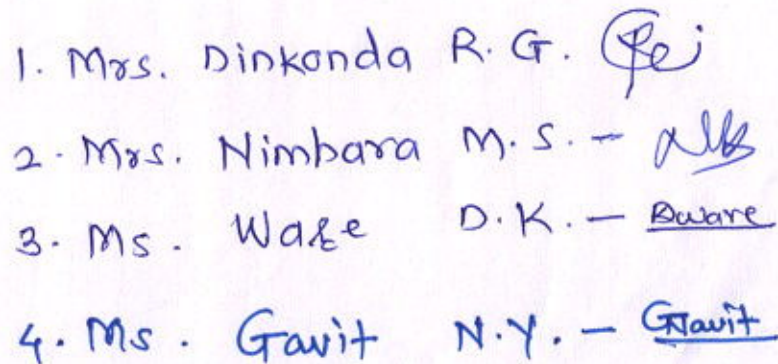 1. Mrs. Dinkonda R. G.
2. Mrs. Nimbara M. S. -
3. Ms. Ware D. K. - Dware
4. Ms. Gavit N. Y. - GNavit